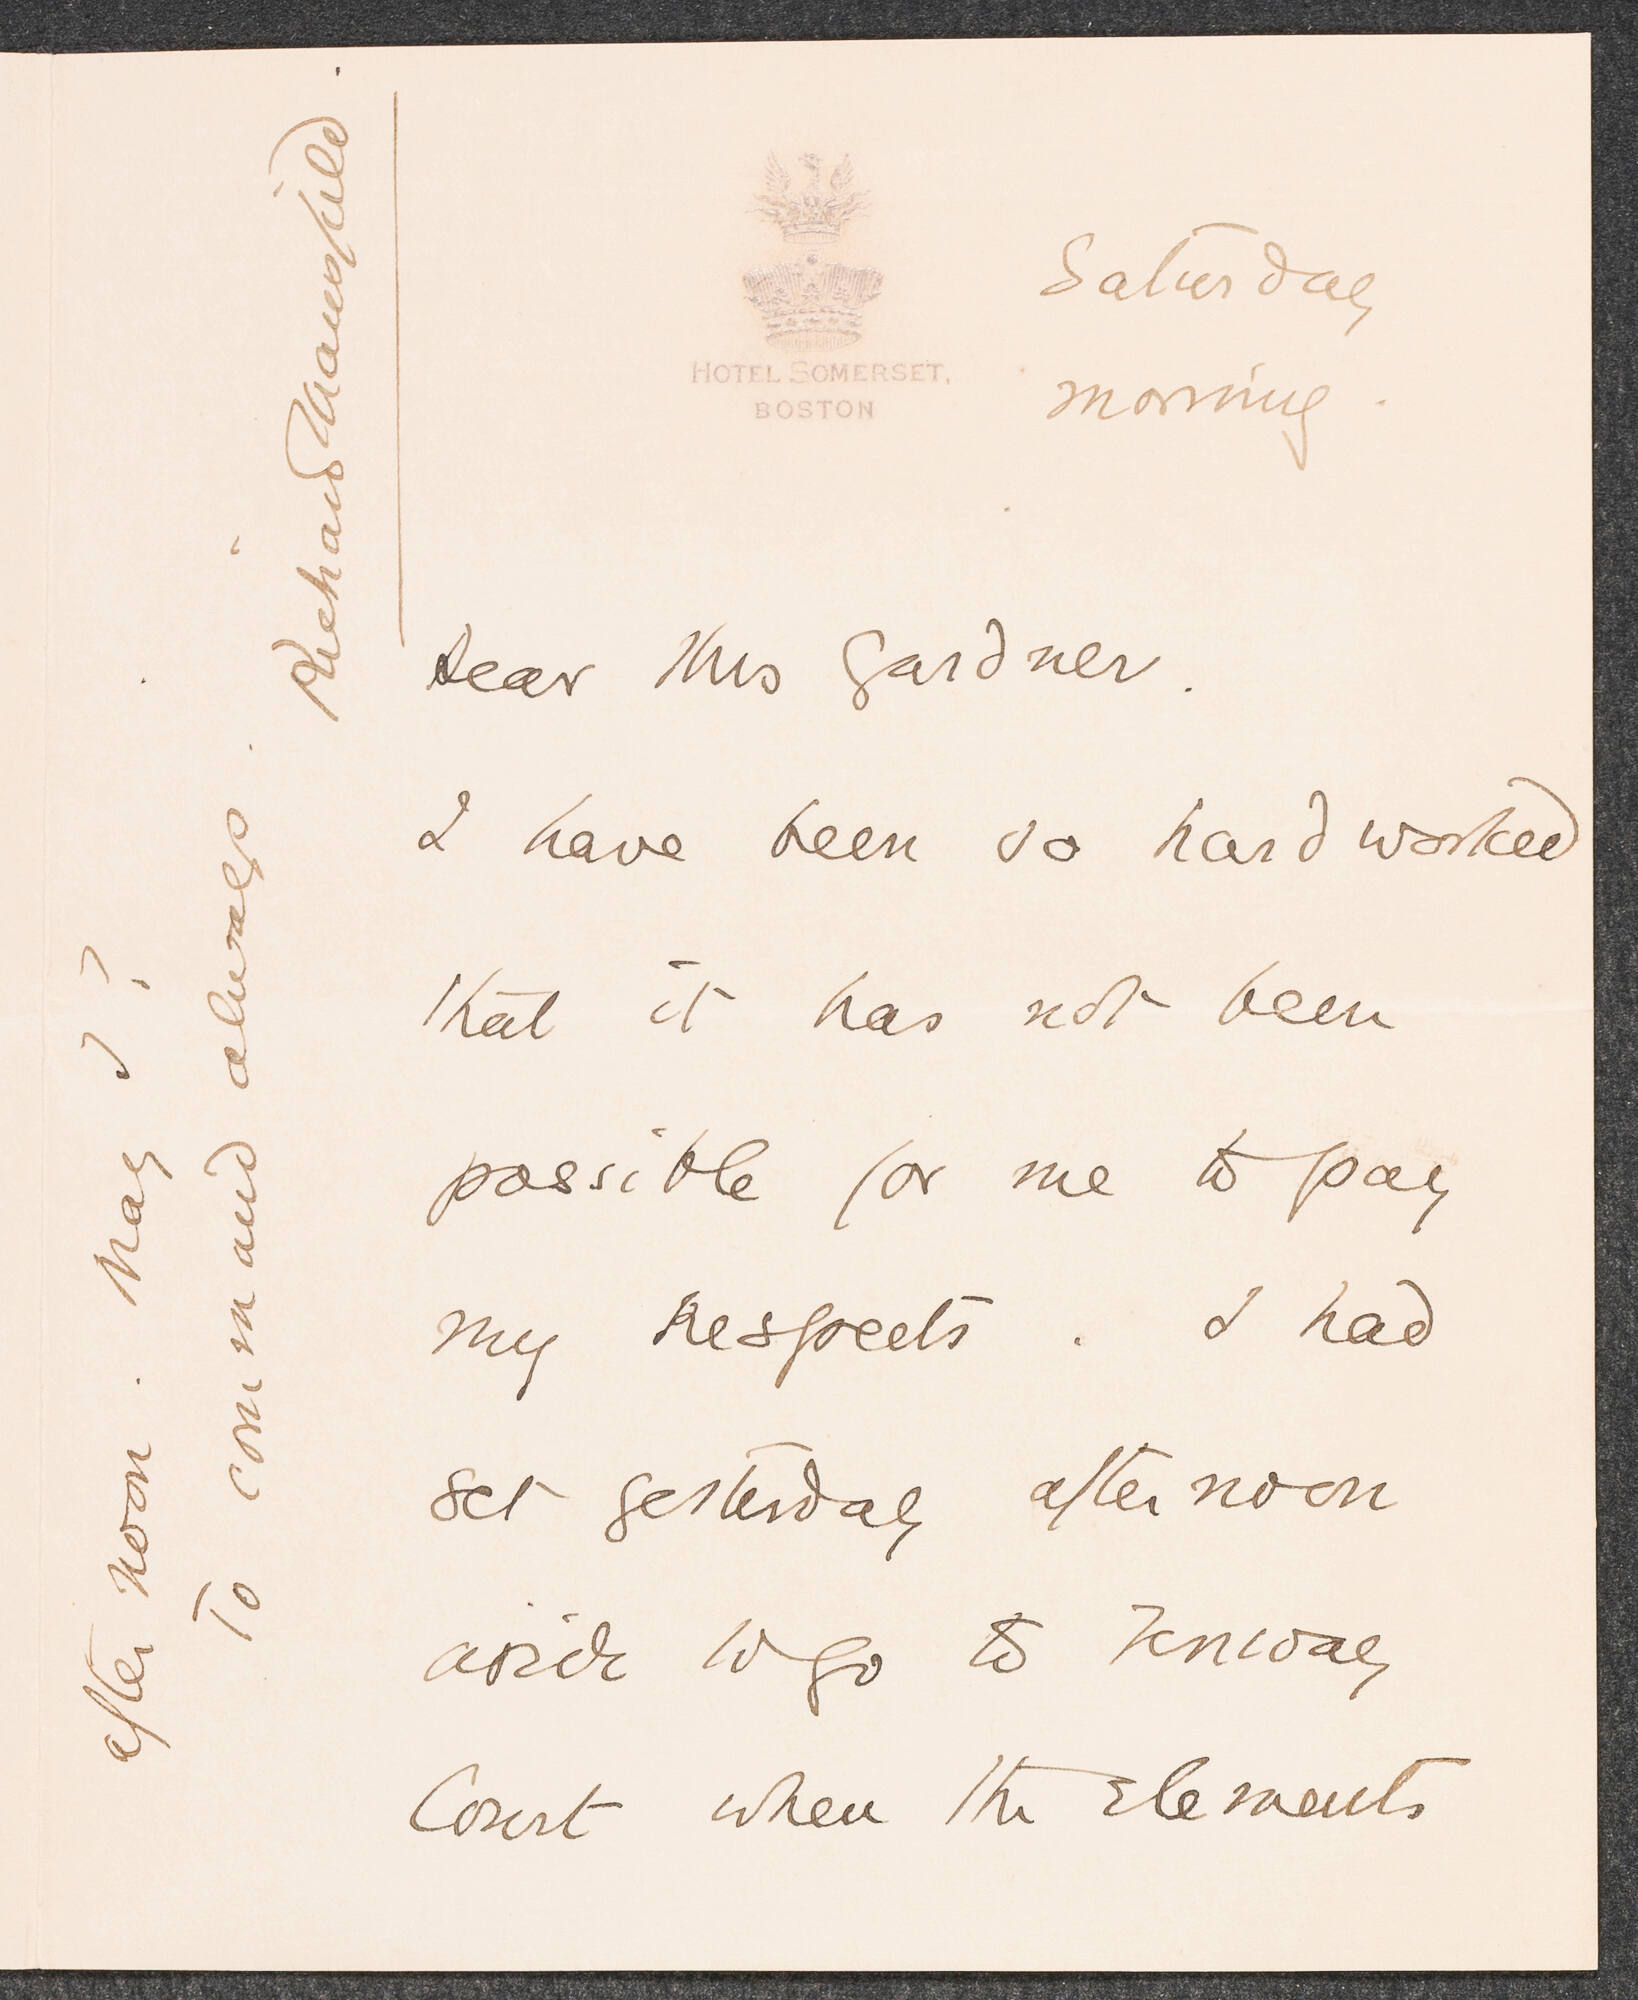 HOTEL SOMERSET,
BOSTON
Saturday
morning.
Dear Mrs Gardner.
I have been so hard worked
that it has not been
possible for me to pay
my respects. I had
set yesterday afternoon
aside to go to Fenway
Court when the Elements
after noon. May I?
To command always.
Richard Mansfield.